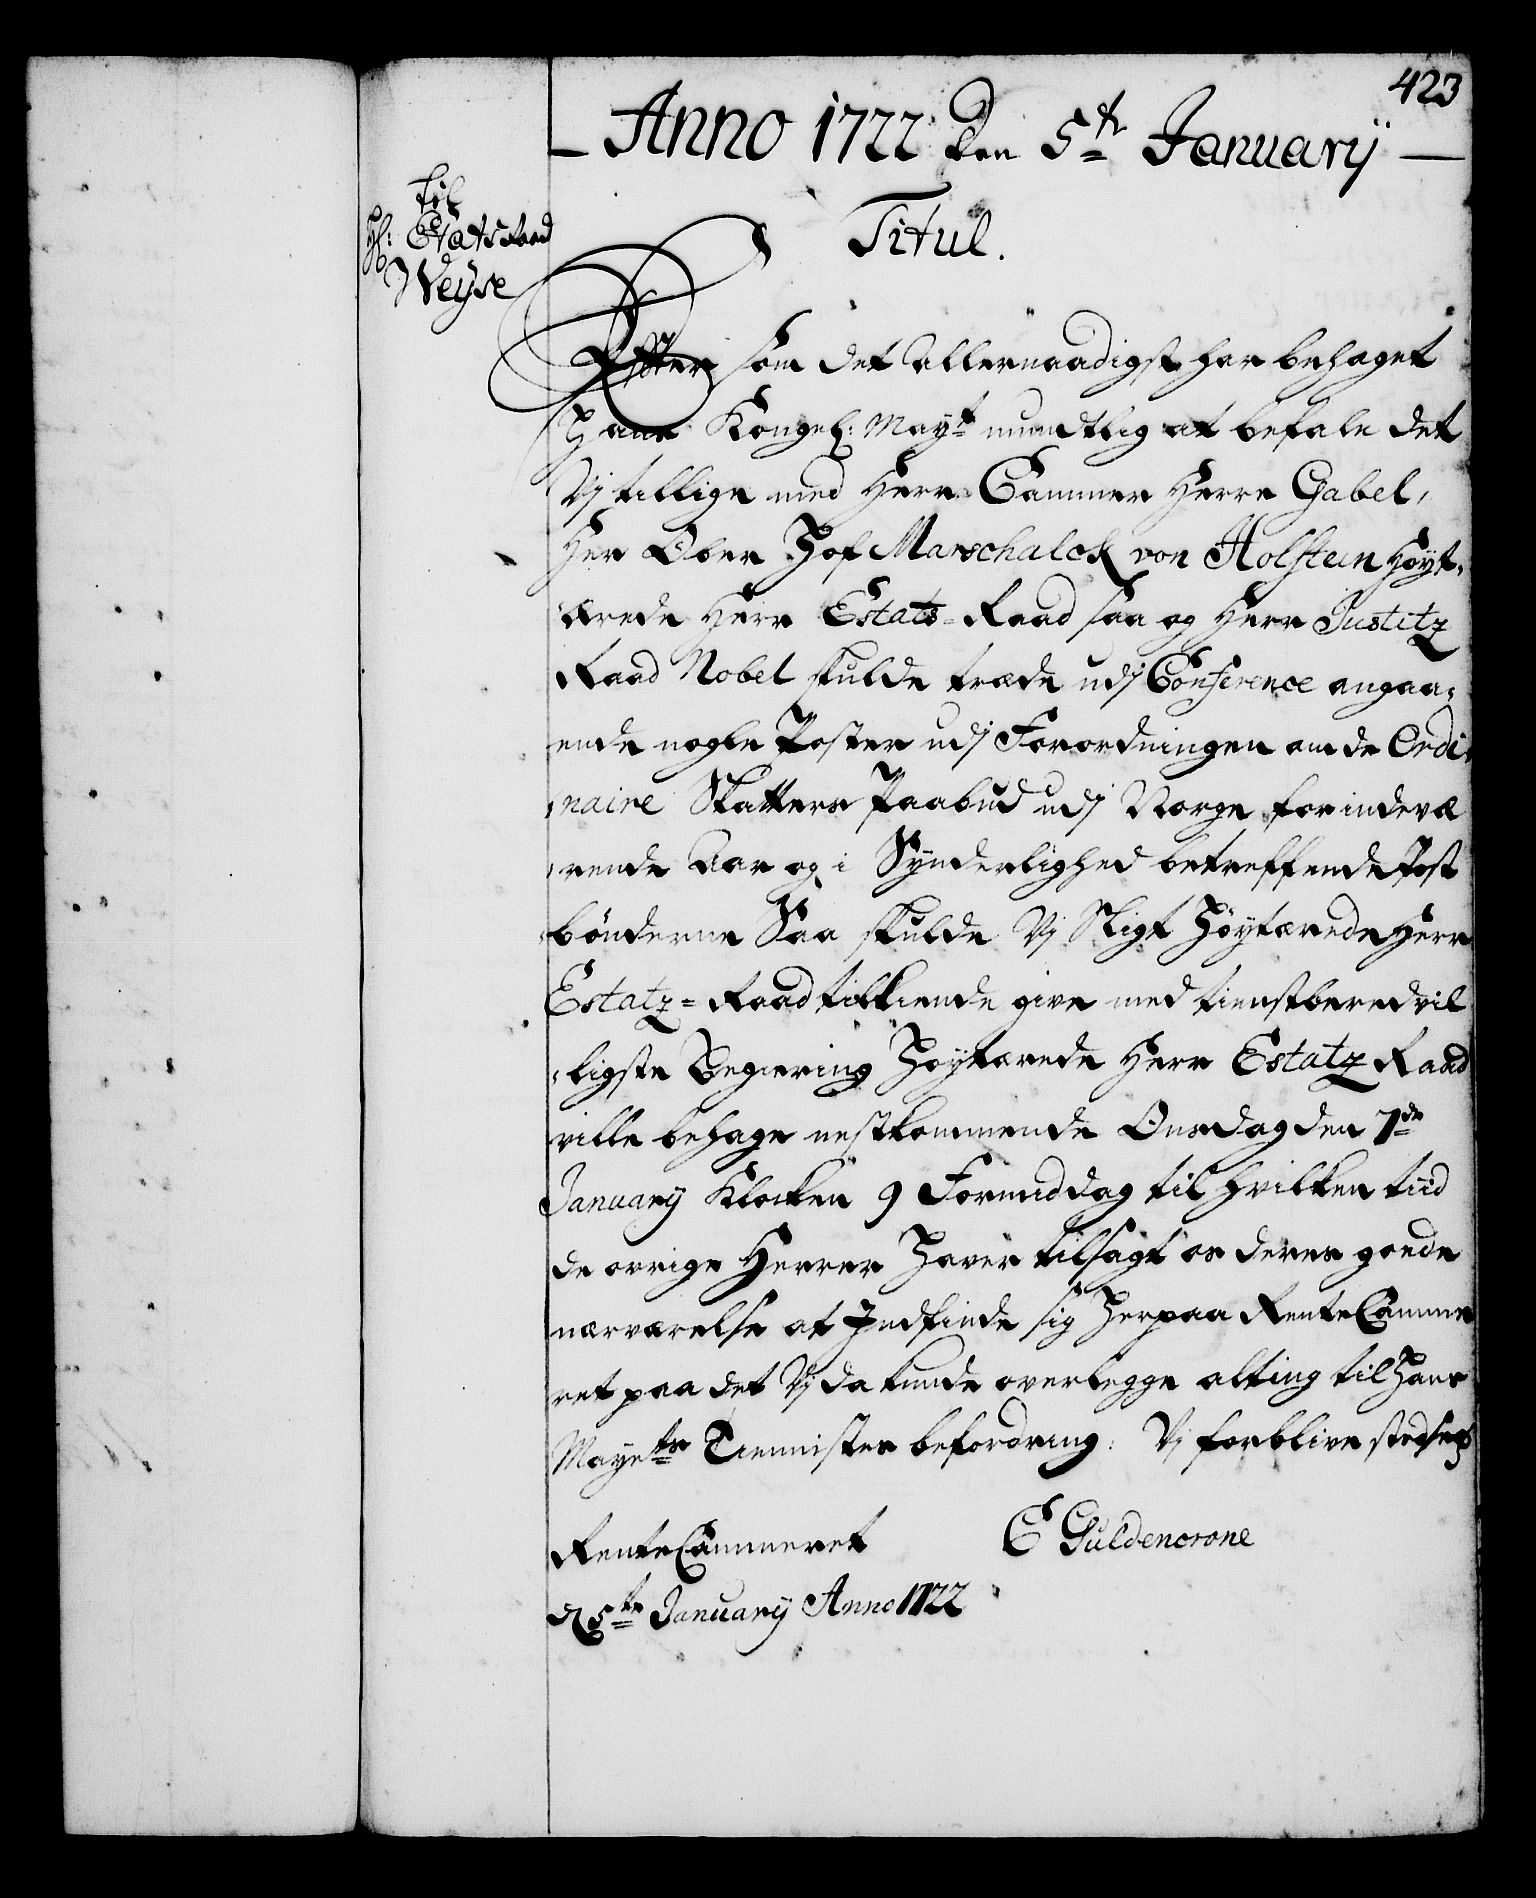 423
Anno 1722 Den 5te January
til
Hr: Etats Raad
Weyse
Titul.
Efter som det Allernaadigst har behaget
Hans Kongel: Mayt mundtlig at befale det
Vj tillige med Herr Cammer Herre Gabel,
Her Ober Hof Marschalck von Holstein Høyt-
ærede Herr Estats-Raad saa og Herr Justitz
Raad Nobel skulde træde udj Conference angaa-
ende nogle Poster udj Forordningen om de Ordi-
naire Skatters Paabud udj Norge for indevæ
rende Aar og i Synderlighed betreffende Post
bønderne Saa skulde Vj Sligt Høytærede Herr
Estatz-Raad tilkiende give med tienstberedvil
ligste Begiering Høytærede Herr Estatz Raad
ville behage nestkommende Onsdag den 7de
January Klocken 9 Formiddag til hvilken tiid
de øvrige Herrer Haver tilsagt os deres goede
nærværelse at Indfinde sig Her paa Rente Camme
ret paa det Vj da kunde overlegge alting til Hans
Mayets Tiennistes befordring: Vj forblive stedse
Rente Cammeret
C Guldencrone
d 5te January Anno 1722